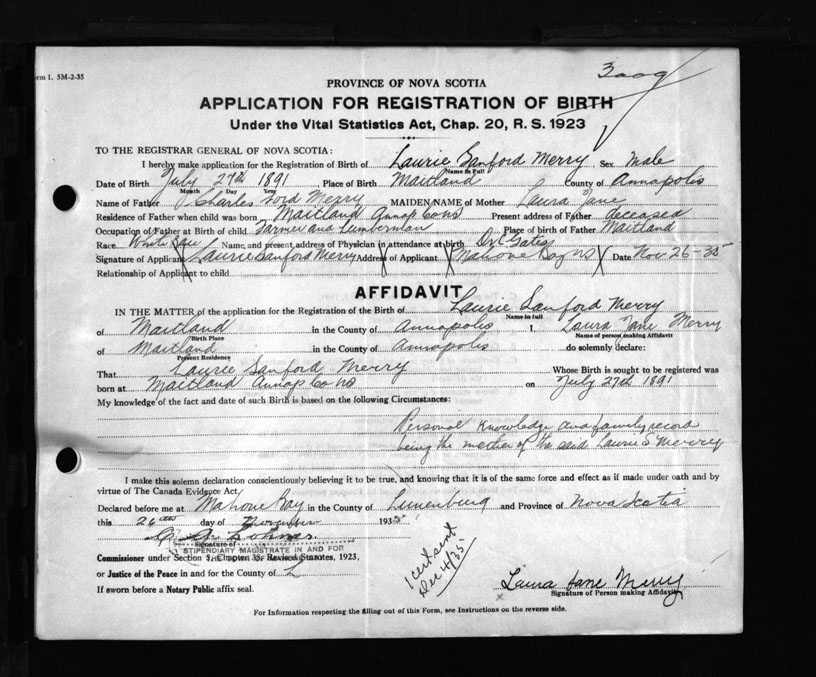 orm 1. 5M-2-35
3009
PROVINCE OF NOVA SCOTIA
APPLICATION FOR REGISTRATION OF BIRTH
Under the Vital Statistics Act, Chap. 20, R. S. 1923
TO THE REGISTRAR GENERAL OF NOVA SCOTIA:
I hereby make application for the Registration of Birth of Laurie Sanford Merry Sex Male
Name in Full
Date of Birth July 27th 1891 Place of Birth Maitland County of Annapolis
Month Day Year
Name of Father Charles Ford Merry MAIDEN NAME of Mother Laura Jane
Residence of Father when child was born Maitland Annap Co NS Present address of Father deceased
Occupation of Father at Birth of Child Farmer and Lumberman Place of birth of Father Maitland
Race White Name, and present address of Physician in attendance at birth Dr Gates
Signature of Applicant Laurie Sanford Merry Address of Applicant Mahone Bay NS Date Nov 26-35
Relationship of Applicant to child
AFFIDAVIT
IN THE MATTER of the application for the Registration of the Birth of Laurie Sanford Merry
Name in full
of Maitland in the County of Annapolis I, Laura Jane Merry
Birth Place Name of person making Affidavit
of Maitland in the County of Annapolis do solemnly declare:
Present Residence
That Laurie Sanford Merry Whose Birth is sought to be registered was
born at Maitland Annap Co NS on July 27th 1891
My knowledge of the fact and date of such Birth is based on the following Circumstances:
Personal Knowledge and family record
being the mother of the said Laurie S Merry
I make this solemn declaration conscientiously believing it to be true, and knowing that it is of the same force and effect as if made under oath and by
virtue of The Canada Evidence Act.
Declared before me at Mahone Bay in the County of Lunenburg and Province of Nova Scotia
this 26th day of November 1935
Signature of
STIPENDIARY MAGISTRATE IN AND FOR
Commissioner under Section 1, Chapter 38, Revised Statutes, 1923,
or Justice of the Peace in and for the County of L
If sworn before a Notary Public affix seal.
1 cert sent
Dec 4/35
Laura Jane Merry
Signature of Person making Affidavit
For Information respecting the filling out of this Form, see Instructions on the reverse side.